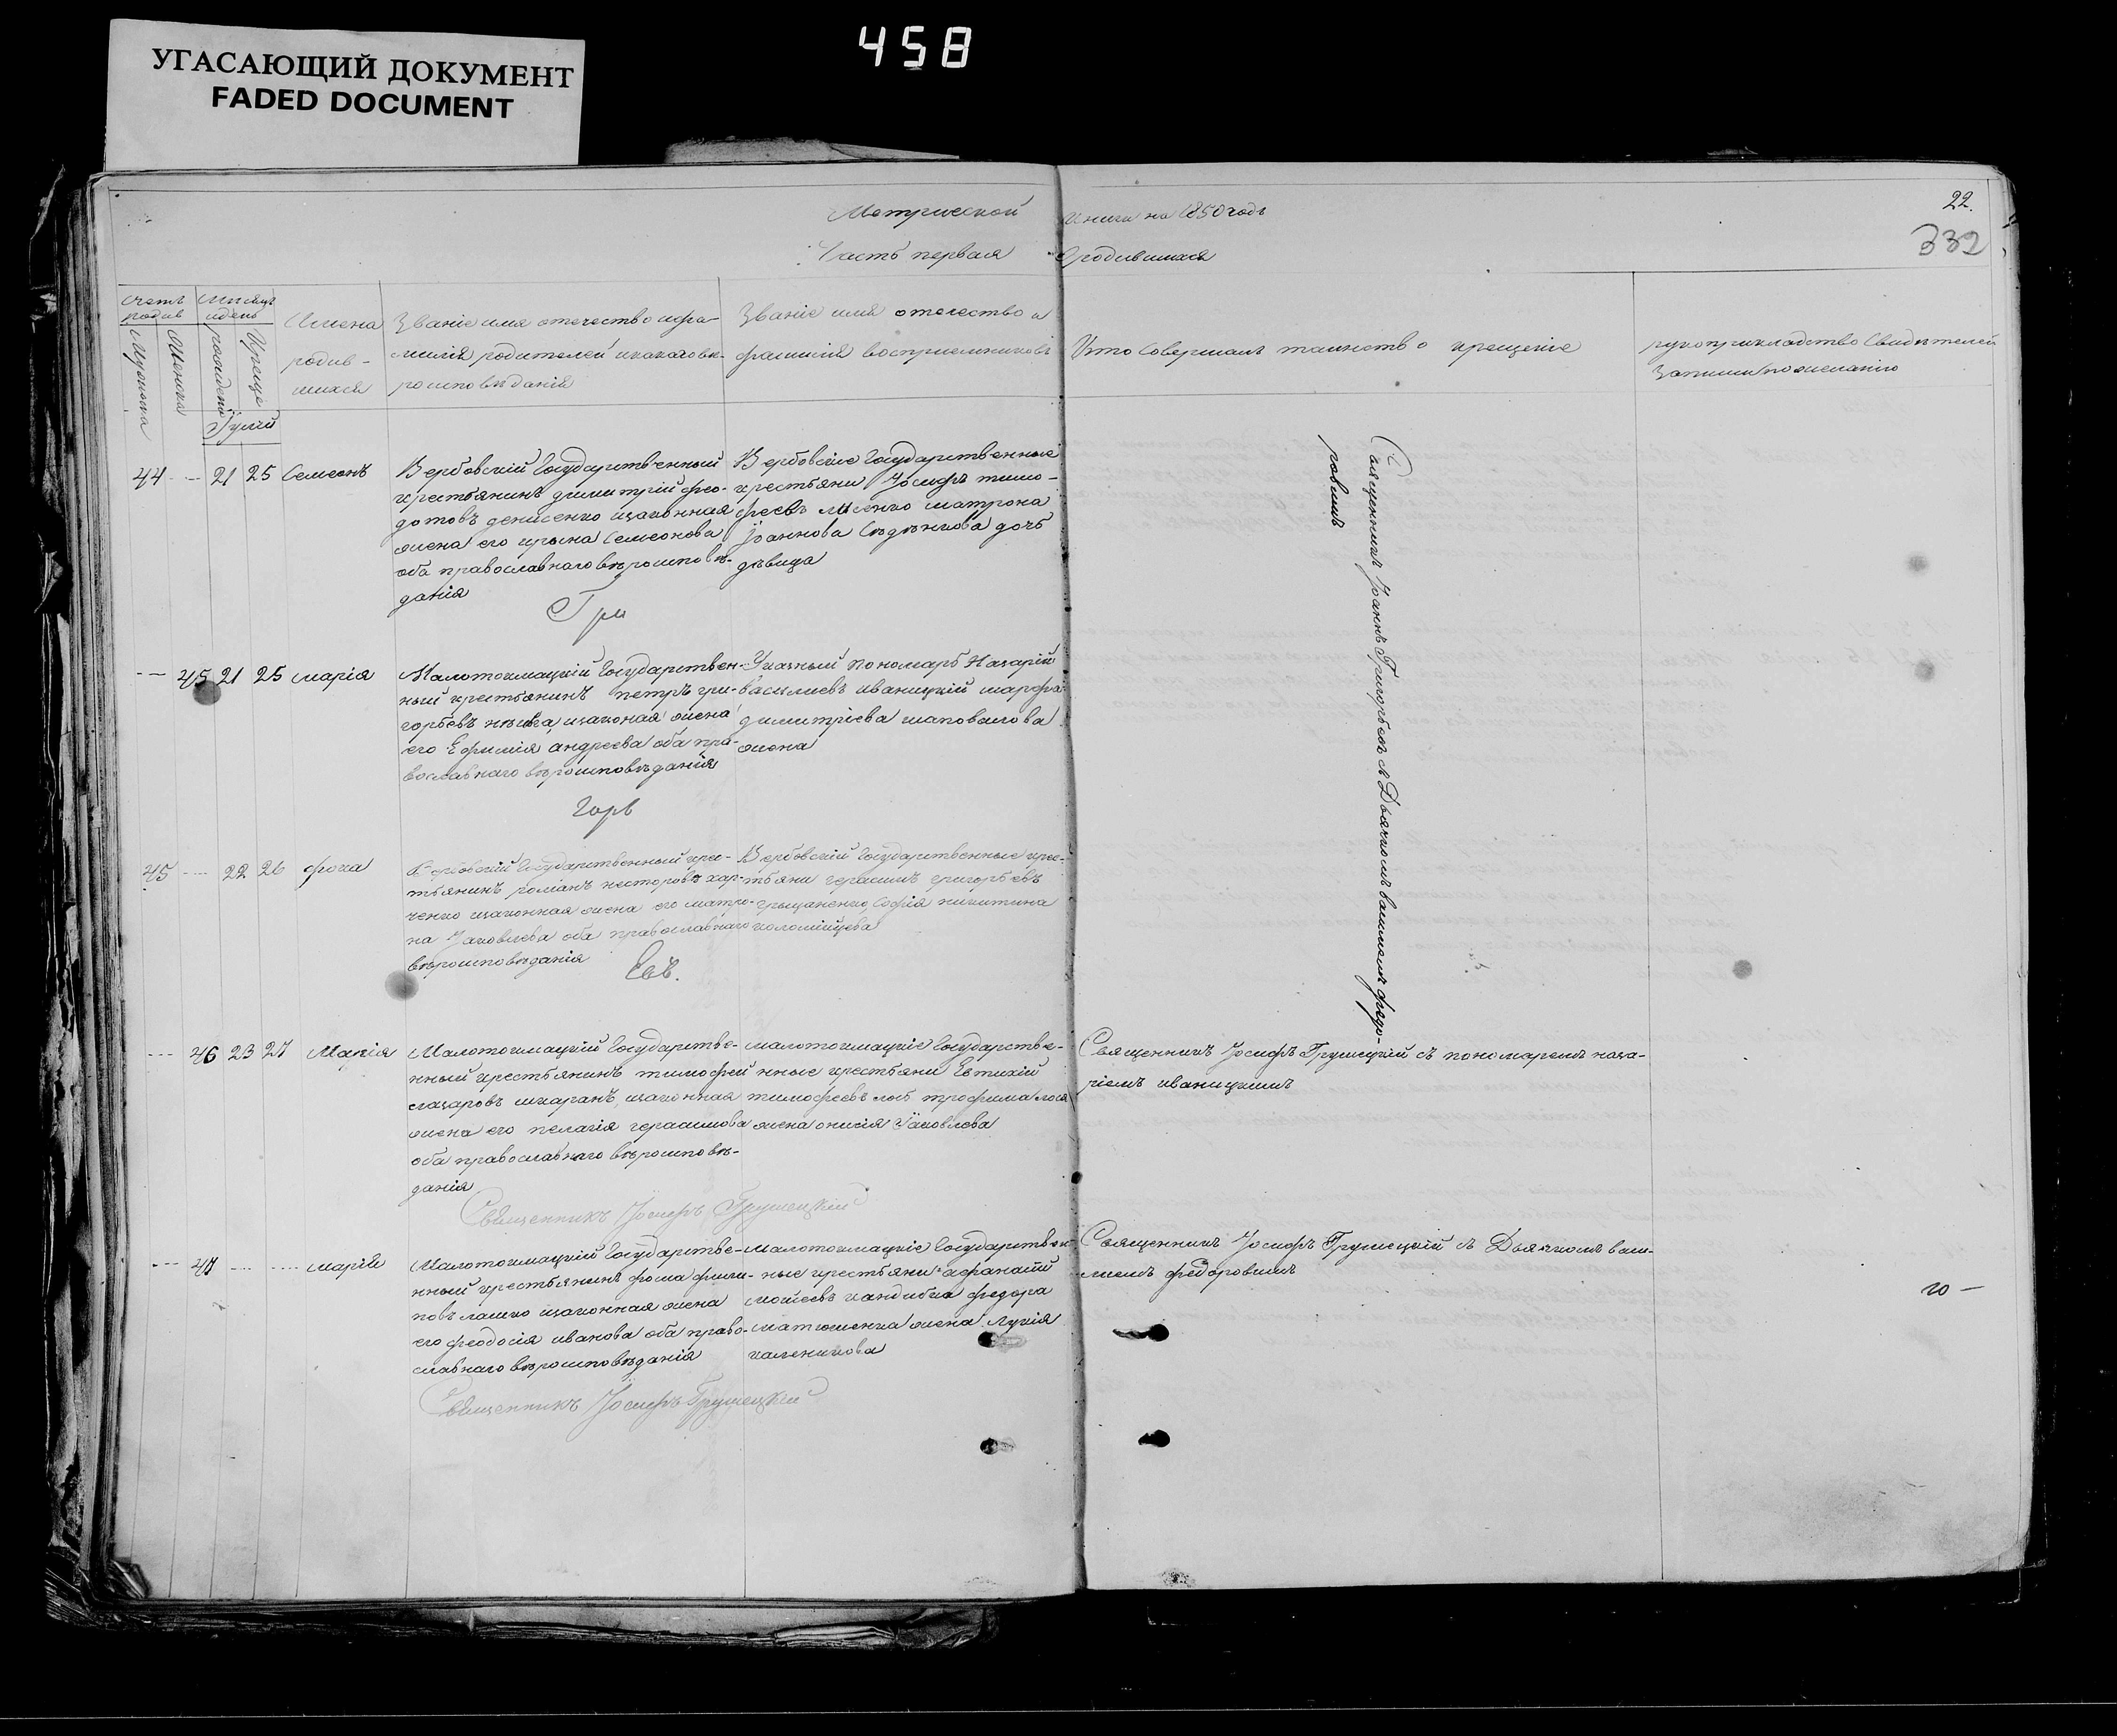 УГАСАЮЩИЙ ДОКУМЕНТ
FADED DOCUMENT
458
22.
332
Метрической книги на 1850 годъ
Часть первая О родившихся
счетъ родив
Мужеска
Женска
Мѣсяцъ и день
рожденія
Креще
Іулій
Имена
родив-
шихся
Званіе имя отечество и фа-
милія родителей и какого вѣ-
роисповѣданія
Званіе имя отечество и
фамилія восприемниковъ
Кто совершалъ таинство крещеніе
рукоприкладство свидѣтелей
записи по желанію
44 -- 21 25 Семеонъ
Вербовскій Государственный
крестьянинъ димитрій фео-
дотовъ денисенко изаконная
жена его ирына Семеонова
оба православнаго вѣроисповѣ-
данія
Вербовскіе Государственные
крестьяни Іосифъ тимо-
феевъ матрона
Іоаннова дочь
дѣвица
Священникъ Іоаннъ Григорьевъ съ Дьячкомъ василіемъ федо-
ровимъ
Гри
-- 45 21 25 марія
Малотокмацкій Государствен-
ный крестьянинъ петръ гри-
горьевъ изаконая жена
его Ефимія андреева оба пра-
вославнаго вѣроисповѣданія
Указный пономарь Назарій
васильевъ иваницкій марфа
димитріева шаповалова
жена
горь
45 --- 22 26 фока
Вербовскій Государственный крес-
тьянинъ романъ несторовъ хар-
ченко изаконная жена его матро-
на Іаковлева оба православнаго
вѣроисповѣданія
Вербовскій Государственные крес-
тьяни герасимъ григорьевъ
грыцаненко, Софія никитина
коломійцева
Евъ.
--- 46 23 27 Марія
Малотокмацкій Государстве-
нный крестьянинъ тимофей
лазаровъ шкаранъ, изаконная
жена его пелагія герасимова
оба православнаго вѣроисповѣ-
данія
малотокмацкіе Государстве-
нные крестьяни Евтихій
тимофеевъ трофима
жена онисія Іаковлева
Священникъ Іосифъ Грушецкій съ пономаремъ наза-
ріемъ иваницкимъ
Священникъ Іосифъ Грушецкій
--- 47 --- ---- марія
Малотокмацкій Государстве-
нный крестьянинъ фома фили-
повъ лашко изаконная жена
его феодосія иванова оба право-
славнаго вѣроисповѣданія
малотокмацкіе Государствен-
ные крестьяни афанасій
моисеевъ кандиба федора
матюшенка жена Лукія
каленикова
Священникъ Іосифъ Грушецкій съ Дьячкомъ васи-
ліемъ федоровимъ
Священникъ Іосифъ Грушецкій